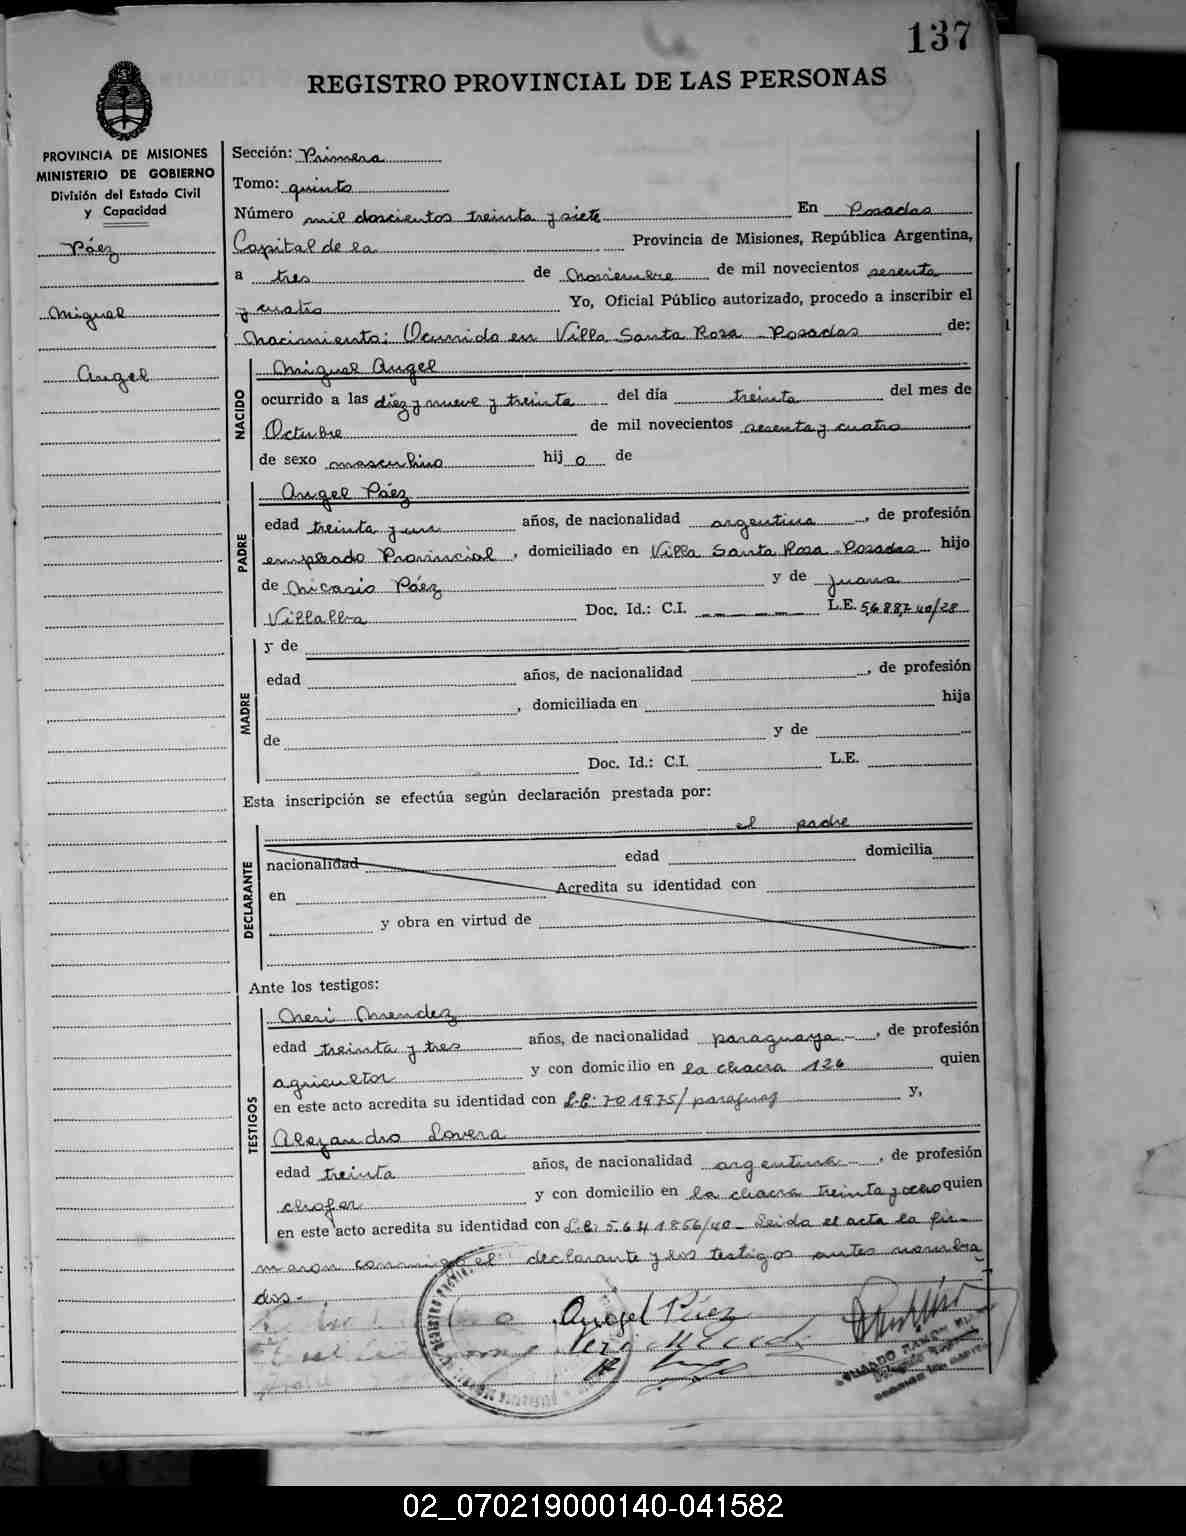 137
REGISTRO PROVINCIAL DE LAS PERSONAS
PROVINCIA DE MISIONES
MINISTERIO DE GOBIERNO
División del Estado Civil
y Capacidad
Páez
Miguel
Angel
Sección: Primera
Tomo: quinto
Número mil doscientos treinta y siete En Posadas
Capital de la Provincia de Misiones, República Argentina,
a tres de Noviembre de mil novecientos sesenta
y cuatro Yo, Oficial Público autorizado, procedo a inscribir el
Nacimiento: Ocurrido en Villa Santa Rosa - Posadas de:
NACIDO
Miguel Angel
ocurrido a las diez y nueve y treinta del día treinta del mes de
Octubre de mil novecientos sesenta y cuatro
de sexo masculino hij o de
PADRE
Angel Páez
edad treinta y un años, de nacionalidad argentina, de profesión
empleado Provincial, domiciliado en Villa Santa Rosa - Posadas hijo
de Nicasio Páez y de Juana
Villalba Doc. Id.: C.I. — — — — L.E. 5,688,740/28
MADRE
y de
edad años, de nacionalidad , de profesión
, domiciliada en hija
de y de
Doc. Id.: C.I. L.E.
Esta inscripción se efectúa según declaración prestada por:
el padre
DECLARANTE
nacionalidad edad domicilia
en Acredita su identidad con
y obra en virtud de
Ante los testigos:
TESTIGOS
Neri Mendez
edad treinta y tres años, de nacionalidad paraguaya -, de profesión
agricultor y con domicilio en la chacra 126 quien
en este acto acredita su identidad con L.E: 701975/ paraguay y,
Alejandro Lovera
edad treinta años, de nacionalidad argentina -, de profesión
chofer y con domicilio en la chacra treinta y ocho quien
en este acto acredita su identidad con L.E: 5.641856/40 - Leida el acta la fir-
maron conmigo el declarante y los testigos antes nombra
dos-
Angel Páez
Neri Mendez
02_070219000140-041582